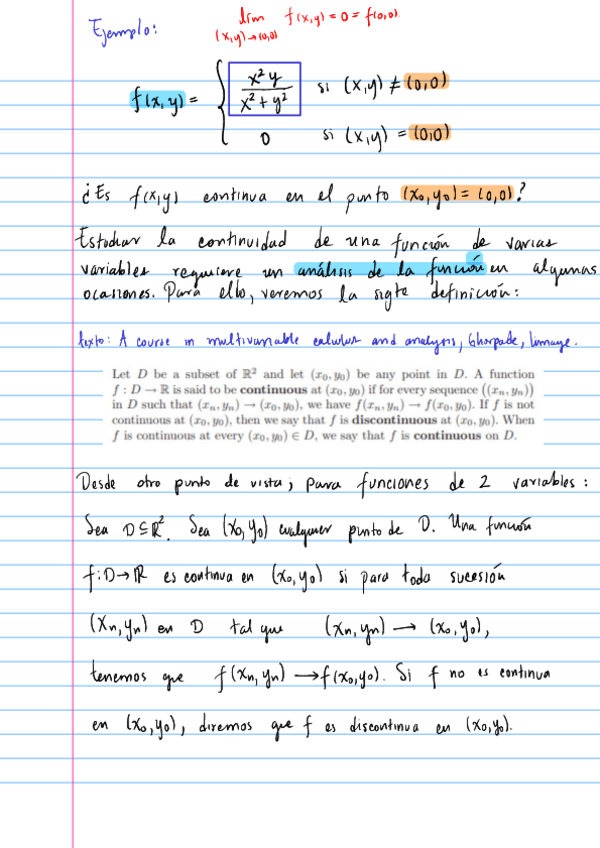 Ejemplo:
lím f(x,y) = 0 = f(0,0)
(x,y)→(0,0)
f(x,y) = { x²y / x²+y² si (x,y) ≠ (0,0)
0 si (x,y) = (0,0)
¿Es f(x,y) continua en el punto (x₀,y₀) = (0,0)?
Estudiar la continuidad de una función de varias
variables requiere un análisis de la función en algunas
ocasiones. Para ello, veremos la sigte definición:
texto: A course in multivariable calculus and analysis, Ghorpade, Limaye.
Let D be a subset of ℝ² and let (x₀, y₀) be any point in D. A function
f : D → ℝ is said to be continuous at (x₀, y₀) if for every sequence ((xₙ, yₙ))
in D such that (xₙ, yₙ) → (x₀, y₀), we have f(xₙ, yₙ) → f(x₀, y₀). If f is not
continuous at (x₀, y₀), then we say that f is discontinuous at (x₀, y₀). When
f is continuous at every (x₀, y₀) ∈ D, we say that f is continuous on D.
Desde otro punto de vista, para funciones de 2 variables:
Sea D⊆ℝ². Sea (x₀,y₀) cualquier punto de D. Una función
f:D→ℝ es continua en (x₀,y₀) si para toda sucesión
(xₙ,yₙ) en D tal que (xₙ,yₙ) → (x₀,y₀),
tenemos que f(xₙ,yₙ) → f(x₀,y₀). Si f no es continua
en (x₀,y₀), diremos que f es discontinua en (x₀,y₀).